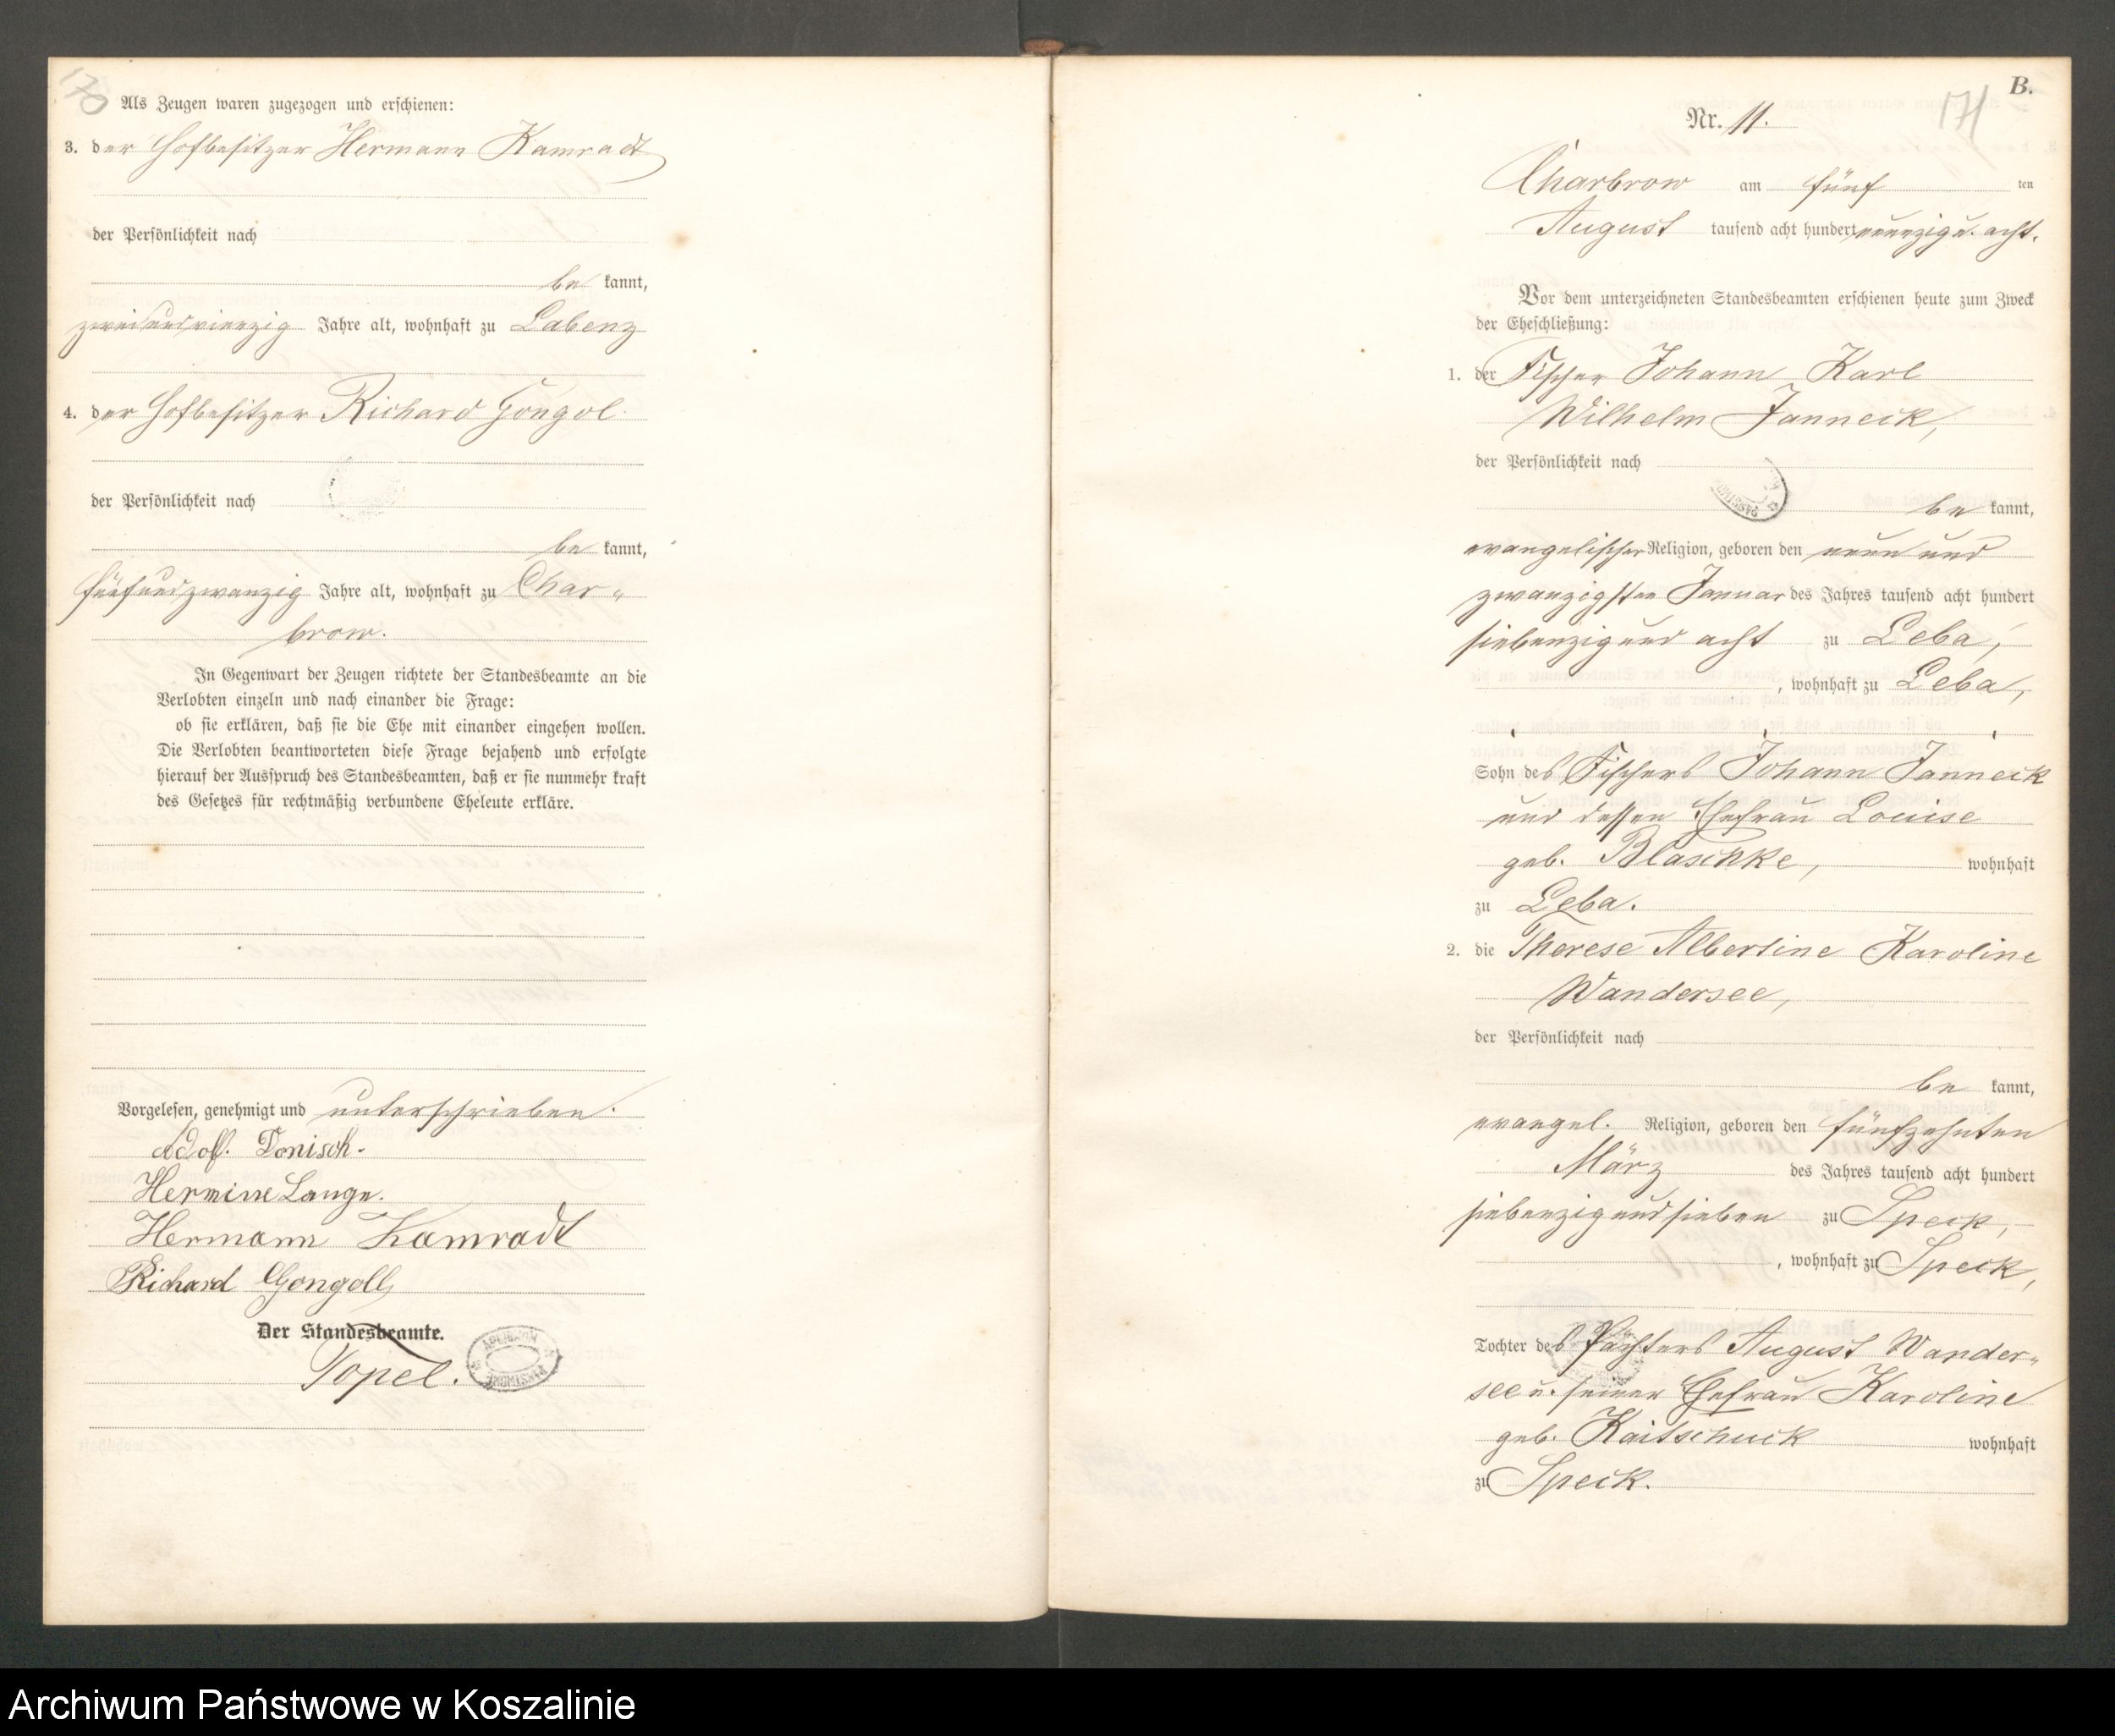 170
Als Zeugen waren zugezogen und erschienen:
3. der Hofbesitzer Hermann Kamradt
der Persönlichkeit nach
be kannt,
zweiundvierzig Jahre alt, wohnhaft zu Labenz
4. der Hofbesitzer Richard Gongol
der Persönlichkeit nach
be kannt,
fünfundzwanzig Jahre alt, wohnhaft zu Char-
brow.
In Gegenwart der Zeugen richtete der Standesbeamte an die
Verlobten einzeln und nach einander die Frage:
ob sie erklären, daß sie die Ehe mit einander eingehen wollen.
Die Verlobten beantworteten diese Frage bejahend und erfolgte
hierauf der Ausspruch des Standesbeamten, daß er sie nunmehr kraft
des Gesetzes für rechtmäßig verbundene Eheleute erkläre.
Vorgelesen, genehmigt und unterschrieben.
Adolf Tonisch.
Hermine Lange.
Hermann Kamradt
Richard Gongoll
Der Standesbeamte.
Topel.
B.
171
Nr. 11.
Charbrow am fünf ten
August tausend acht hundert neunzig u. acht.
Vor dem unterzeichneten Standesbeamten erschienen heute zum Zweck
der Eheschließung:
1. der Fischer Johann Karl
Wilhelm Janneck,
der Persönlichkeit nach
be kannt,
evangelischer Religion, geboren den neun und
zwanzigsten Januar des Jahres tausend acht hundert
siebenzig und acht zu Leba,
, wohnhaft zu Leba,
Sohn des Fischers Johann Janneck
und dessen Ehefrau Louise
geb. Blaschke, wohnhaft
zu Leba.
2. die Therese Albertine Karoline
Wandersee,
der Persönlichkeit nach
be kannt,
evangel. Religion, geboren den fünfzehnten
März des Jahres tausend acht hundert
siebenzig und sieben zu Speck,
, wohnhaft zu Speck,
Tochter des Pächters August Wander-
see u. seiner Ehefrau Karoline
geb. Kaitschuck wohnhaft
zu Speck.
Archiwum Państwowe w Koszalinie